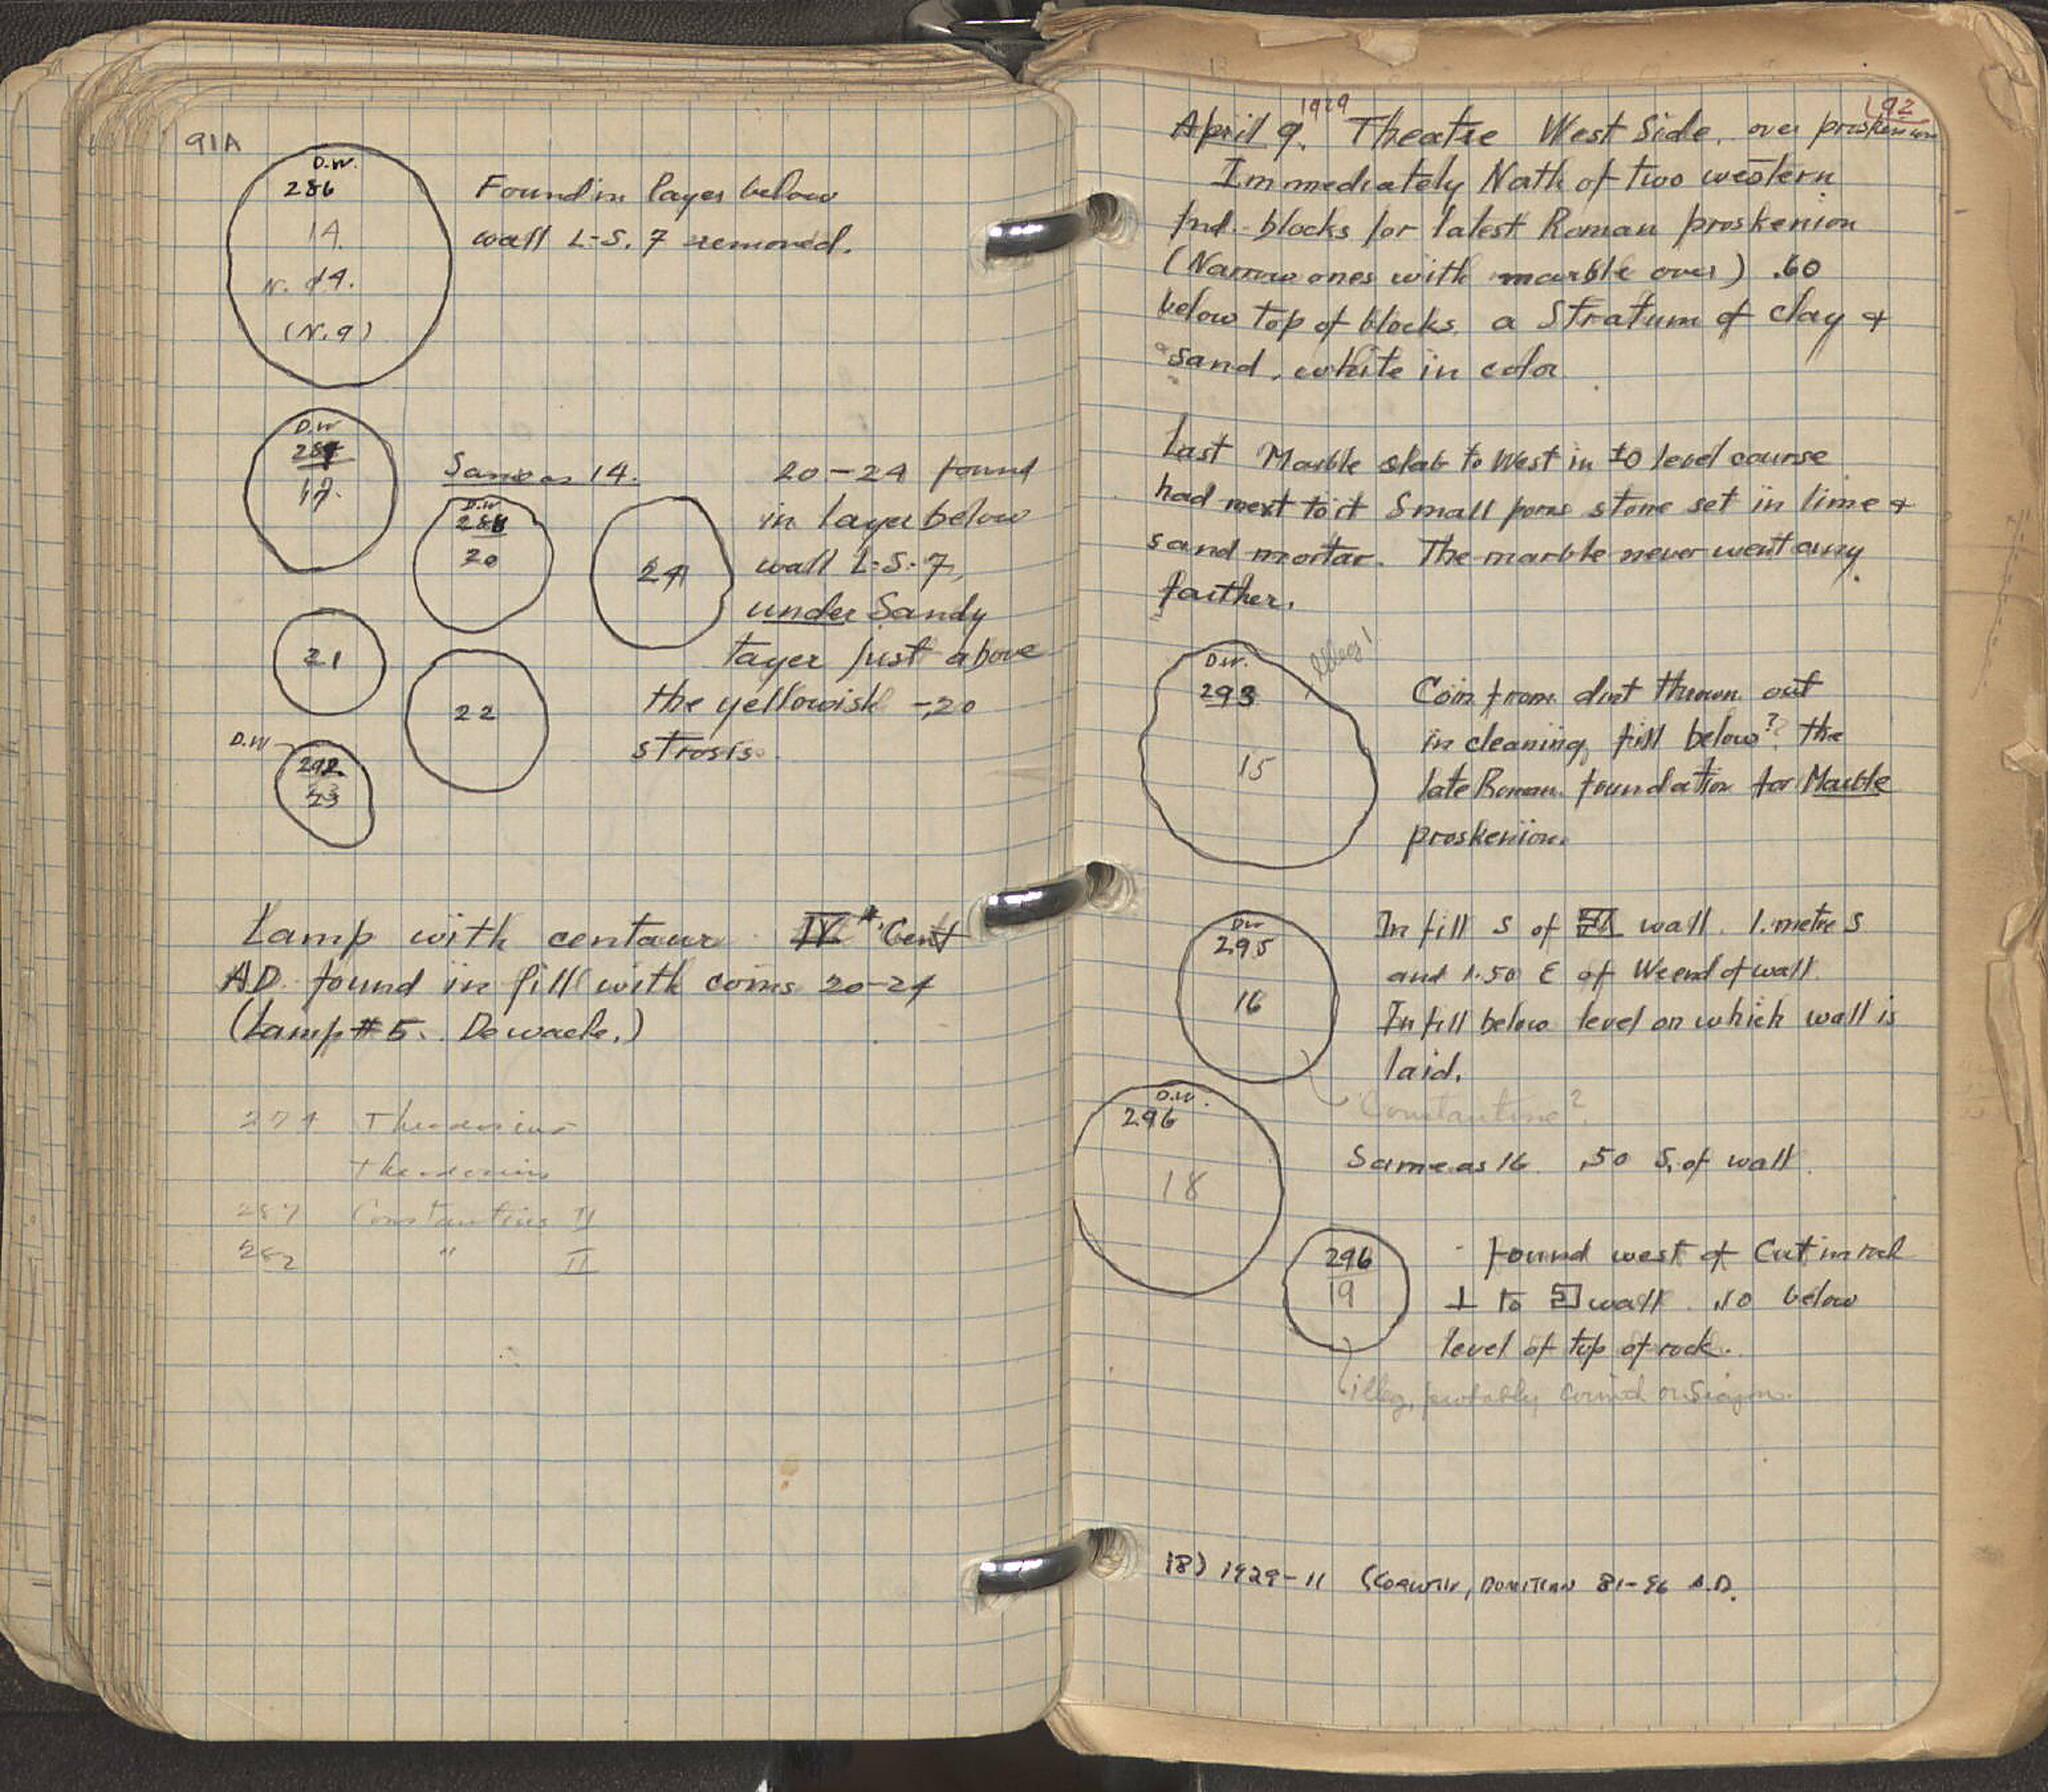 91A
D.W.
286
14.
N. 14.
(N.9)
Found in layer below
wall L-S. 7 removed.
D.W
287
17.
Same as 14.
D.W
288
20
24
20-24 found
in layer below
wall L-S-7,
under Sandy
layer just above
the yellowish -,20
strosis.
21
22
D.W
292
23
Lamp with centaur IV Cent
A.D. found in fill with coins 20-24
(Lamp #5.
274 Theodosius
Theodosius
287 Constantius II
282 " II
192
April 9. 1929 Theatre West Side. over proskenion
Immediately North of two western
fnd. blocks for latest Roman proskenion
(Narrow ones with marble over) .60
below top of blocks a Stratum of clay &
sand, white in color
Last Marble slab to West in ±0 level course
had next to it Small poros stone set in lime &
sand mortar. The marble never went any
farther.
D.W.
293
15
illeg!
Coin from dirt thrown out
in cleaning fill below? the
late Roman foundation for Marble
proskenion.
D.W
295
16
In fill S of wall. 1. metre S
and 1.50 E of W end of wall.
In fill below level on which wall is
laid.
Constantine?
D.W.
296
18
Same as 16 .50 S. of wall.
296
19
found west of Cut in rock
⊥ to 5 wall .10 below
level of top of rock.
illeg, probably Corinth or Sicyon.
18) 1929-11 (CORINTH, DOMITIAN 81-96 A.D.